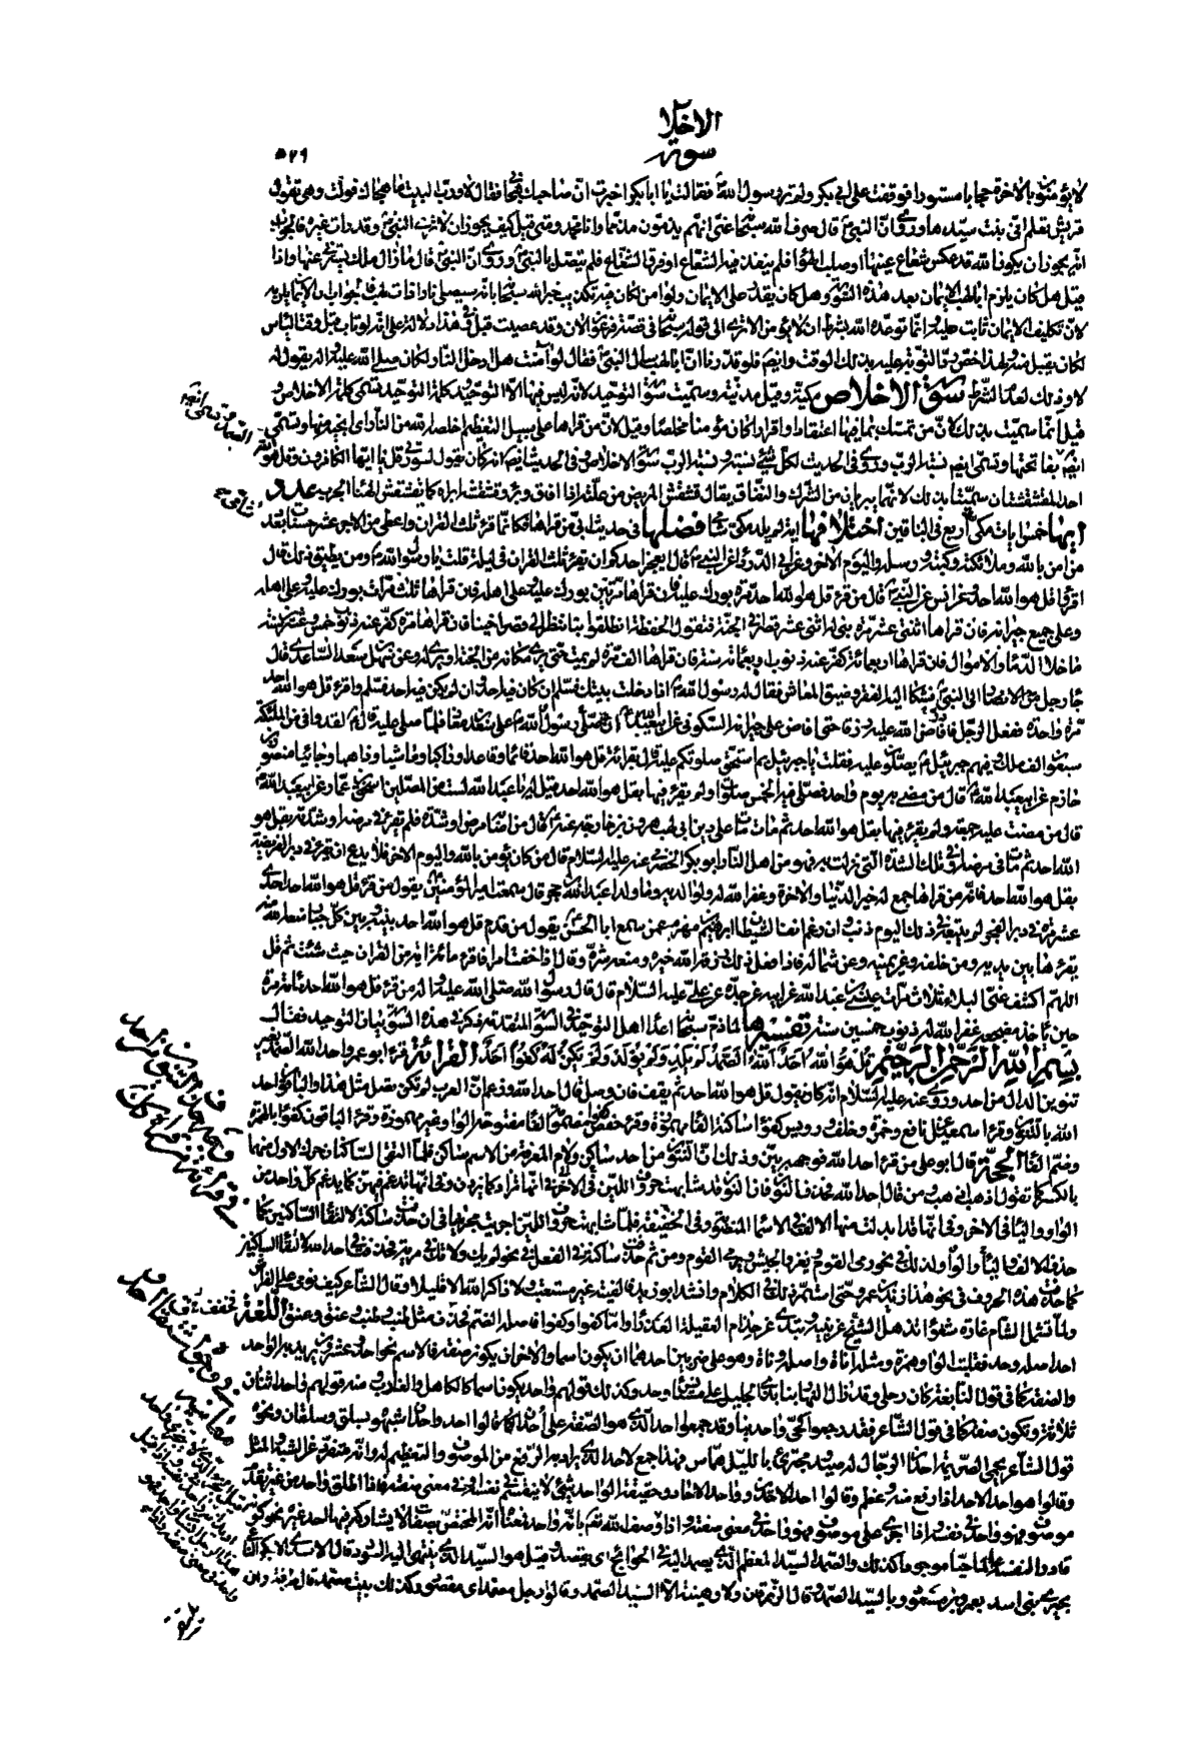 الاخلاص
سورة
٥٢٩
لا يؤمنون بالاخرة حجابا مستورا فوقفت على ابى بكر ولم تر رسول الله فقالت يا ابا بكر اخبرت ان صاحبك هجانى فقال لا ورب البيت ما هجاك فولت وهى تقول
قريش تعلم انى بنت سيدها وروى ان النبى قال صرف الله سبحانه عنى انهم يذمون مذمما وانا محمد ومتى قيل كيف يجوز ان لا ترى النبى وقد رات غيره فالجواب
انه يجوز ان يكون الله قد عكس شعاع عينها او صلب الهواء فلم ينفذ فيه الشعاع او فرق الشعاع فلم يتصل بالنبى وروى ان النبى قال ما زال ملك يسترنى عنها واذا
قيل هل كان يلزم ابا لهب الايمان بعد هذه السورة وهل كان يقدر على الايمان ولو امن لكان فيه تكذيب خبر الله سبحانه بانه سيصلى نارا ذات لهب فالجواب ان الايمان يلزمه
لان تكليف الايمان ثابت عليه وانما توعده الله بشرط ان لا يؤمن الا ترى الى قوله سبحانه فى قصة فرعون الان وقد عصيت قبل وفى هذا دلالة على انه لو تاب قبل وقت الياس
لكان يقبل منه ولهذا خص رد التوبة عليه بذلك الوقت وايضا فلو قدرنا ان ابا لهب سال النبى فقال لو آمنت هل ادخل النار لكان صلى الله عليه واله يقول له
لا وذلك لعدم الشرط سورة الاخلاص مكية وقيل مدنية وسميت سورة التوحيد لانه ليس فيها الا التوحيد وكلمة التوحيد تسمى كلمة الاخلاص و
قيل انما سميت بذلك لان من تمسك بما فيها اعتقادا واقرارا كان مؤمنا مخلصا وقيل لان من قراها على سبيل التعظيم اخلصه الله من النار اى انجاه منها وتسمى
ايضا بفاتحتها وتسمى ايضا نسبة الرب وروى فى الحديث لكل شىء نسبة ونسبة الرب سورة الاخلاص وفى الحديث ايضا انه كان يقول لسورتى قل يا ايها الكافرون وقل هو الله
احد المقشقشتان سميتا بذلك لانهما يبريان من الشرك والنفاق يقال قشقشه المريض من علته اذا افاق وبرء وقشقشه ابراه كما يقشقش الهناء الجرب عدد
ايها خمس ايات مكى اربع فى الباقين اختلافها اية لم يلد مكى شامى فضلها فى حديث ابى من قراها فكانما قرء ثلث القران واعطى من الاجر عشر حسنات بعدد
من امن بالله وملائكته وكتبه ورسله واليوم الاخر وعن ابى الدرداء عن النبى قال ايعجز احدكم ان يقرء ثلث القران فى ليلة قلت يا رسول الله ومن يطيق ذلك قال
اقراوا قل هو الله احد وعن انس عن النبى قال من قرء قل هو الله احد مرة بورك عليه فان قراها مرتين بورك عليه وعلى اهله فان قراها ثلث مرات بورك عليه وعلى اهله
وعلى جميع جيرانه فان قراها اثنتى عشرة مرة بنى له اثنى عشر قصرا فى الجنة فتقول الحفظة انطلقوا بنا ننظر الى قصر اخينا فان قراها مائة مرة كفر عنه ذنوب خمس وعشرين سنة
ما خلا الدماء والاموال فان قراها اربعمائة كفر عنه ذنوب اربعمائة سنة فان قراها الف مرة لم يمت حتى يرى مكانه من الجنة او يرى له وعن سهل بن سعد الساعدى قال
جاء رجل من الانصار الى النبى فشكا اليه الفقر وضيق المعاش فقال له رسول الله اذا دخلت بيتك فسلم ان كان فيه احد وان لم يكن فيه احد فسلم واقرء قل هو الله احد
مرة واحدة ففعل الرجل فافاض الله عليه رزقا حتى افاض على جيرانه السكونى عن ابى عبد الله ان رسول الله صلى على سعد بن معاذ فلما صلى عليه قال لقد وافى من الملئكة
سبعون الف ملك وفيهم جبرئيل يصلون عليه فقلت يا جبرئيل بم استحق صلوتكم عليه قال بقرائة قل هو الله احد قائما وقاعدا وراكبا وماشيا وذاهبا وجائيا منصور بن
حازم عن ابى عبد الله قال من مضى به يوم واحد فصلى فيه الخمس صلوات ولم يقرء فيها بقل هو الله احد قيل له يا عبد الله لست من المصلين اسحق بن عمار عن ابى عبد الله
قال من مضت عليه جمعة ولم يقرء فيها بقل هو الله احد ثم مات مات على دين ابى لهب هرون بن خارجة عنه قال من اصابه مرض او شدة فلم يقرء فى مرضه او شدته بقل هو
الله احد ثم مات فى مرضه او فى تلك الشدة التى نزلت به فهو من اهل النار ابو بكر الحضرمى عنه عليه السلام قال من كان يؤمن بالله واليوم الاخر فلا يدع ان يقرء فى دبر الفريضة
بقل هو الله احد فانه من قراها جمع له خير الدنيا والاخرة وغفر الله له ولوالديه وما ولدا عبد الله بن حجر قال سمعت امير المؤمنين يقول من قرء قل هو الله احد احدى
عشرة مرة فى دبر الفجر لم يتبعه فى ذلك اليوم ذنب وان رغم انف الشيطان ابراهيم بن مهزم عمن سمع ابا الحسن يقول من قدم قل هو الله احد بينه وبين كل جبار منعه الله منه
يقرءها بين يديه ومن خلفه وعن يمينه وعن شماله فاذا فعل ذلك رزقه الله خيره ومنعه شره وقال اذا خفت امرا فاقرء مائة اية من القران حيث شئت ثم قل
اللهم اكشف عنى البلاء ثلاث مرات عيسى بن عبد الله عن ابيه عن جده عن على عليه السلام قال قال رسول الله صلى الله عليه واله من قرء قل هو الله احد مائة مرة
حين ياخذ مضجعه غفر الله له ذنوب خمسين سنة تفسيرها لما ذم سبحانه اعداء اهل التوحيد فى السورة المتقدمة ذكر فى هذه السورة بيان التوحيد فقال
بسم الله الرحمن الرحيم قل هو الله احد الله الصمد لم يلد ولم يولد ولم يكن له كفوا احد القرائة قرء ابو عمرو احد الله الصمد بغير
تنوين الدال من احد وروى عنه عليه السلام انه كان يقول قل هو الله احد ثم يقف فان وصل قال احد الله وزعم ان العرب لم تكن تصل مثل هذا والباقون احد
الله بالتنوين وقرء اسمعيل عن نافع وحمزة وخلف ورويس كفؤا ساكنة الفاء مهموزة وقرء حفص مضمومة الفاء مفتوحة الواو غير مهموزة وقرء الباقون كفؤا بالهمزة
وضم الفاء الحجة قال ابو على من قرء احد الله فوجهه بين وذلك ان التنوين من احد ساكن ولام المعرفة من الاسم ساكن فلما التقى الساكنان حرك الاول منهما
بالكسر كما تقول اذهب اذهب ومن قال احد الله فحذف النون فان النون قد شابهت حروف اللين فى الاخر فى انها تزاد كما يزدن وفى انها تدغم فيهن كما يدغم كل واحد من
الواو والياء فى الاخر وفى انها قد ابدلت منها الالف فى الاسماء المنصوبة وفى الخفيفة فلما شابهت حروف اللين اجريت مجراها فى ان حذفت ساكنة لالتقاء الساكنين كما
حذف الالف والياء والواو لذلك فى نحو رمى القوم ويغزو الجيش ويرمى القوم ومن ثم حذفت ساكنة فى الفعل فى نحو لم يك ولا تك فى مرية فحذفت فى احد الله لالتقاء الساكنين
كما حذفت هذه الحروف فى نحو هذا زيد بن عمرو حتى استمر ذلك فى الكلام وانشد ابو زيد فالفيته غير مستعتب ولا ذاكر الله الا قليلا وقال الشاعر كيف نومى على الفراش
ولما تشمل الشام غارة شعواء تذهل الشيخ عن بنيه وتبدى عن خدام العقيلة العذراء واما كفوا وكفؤا فاصله الضم فخفف مثل طنب وطنب وعنق وعنق اللغة
احد اصله وحد فقلبت الواو همزة ومثله اناة واصله وناة وهو على ضربين احدهما ان يكون اسما والاخر ان يكون صفة فالاسم نحو احد وعشرون يريد به الواحد
والصفة كما فى قول النابغة كان رحلى وقد زال النهار بنا بذى الجليل على مستانس وحد وكذلك قولهم واحد يكون اسما كالكاهل والغارب ومنه قولهم واحد اثنان
ثلاثة ويكون صفة كما فى قول الشاعر فقد رجعوا كحى واحدينا وقد جمعوا احدا الذى هو الصفة على احدان قالوا احد واحدان شبهوه بسلق وسلقان ونحوه
قول الشاعر يحمى الصريمة احدان الرجال له صيد ومجترئ بالليل هماس فهذا جمع لاحد الذى يراد به الرفع من الموصوف والتعظيم له وانه متفرد عن الشبه والمثل
وقالوا هو احد الاحد اذا رفع منه وعظم وقالوا احد الاحدين وواحد الاحاد وحقيقة الواحد شىء لا ينقسم فى نفسه او فى معنى صفته فاذا اطلق واحد من غير تقدم
موصوف فهو واحد فى نفسه واذا اجرى على موصوف فهو واحد فى معنى صفته واذا وصف الله تعالى بانه واحد فمعناه انه المختص بصفات لا يشاركه فيها احد غيره نحو كونه
قادرا لنفسه عالما حيا موجودا كذلك والصمد السيد المعظم الذى يصمد اليه فى الحوائج اى يقصد وقيل هو السيد الذى ينتهى اليه السودد قال الاسدى الا بكر الناعى
بخيرى بنى اسد بعمرو بن مسعود وبالسيد الصمد وقال الزبرقان ولا رهينة الا السيد الصمد وقالوا رجل مصمد اى مقصود وكذلك بيت مصمد قال طرفة وان